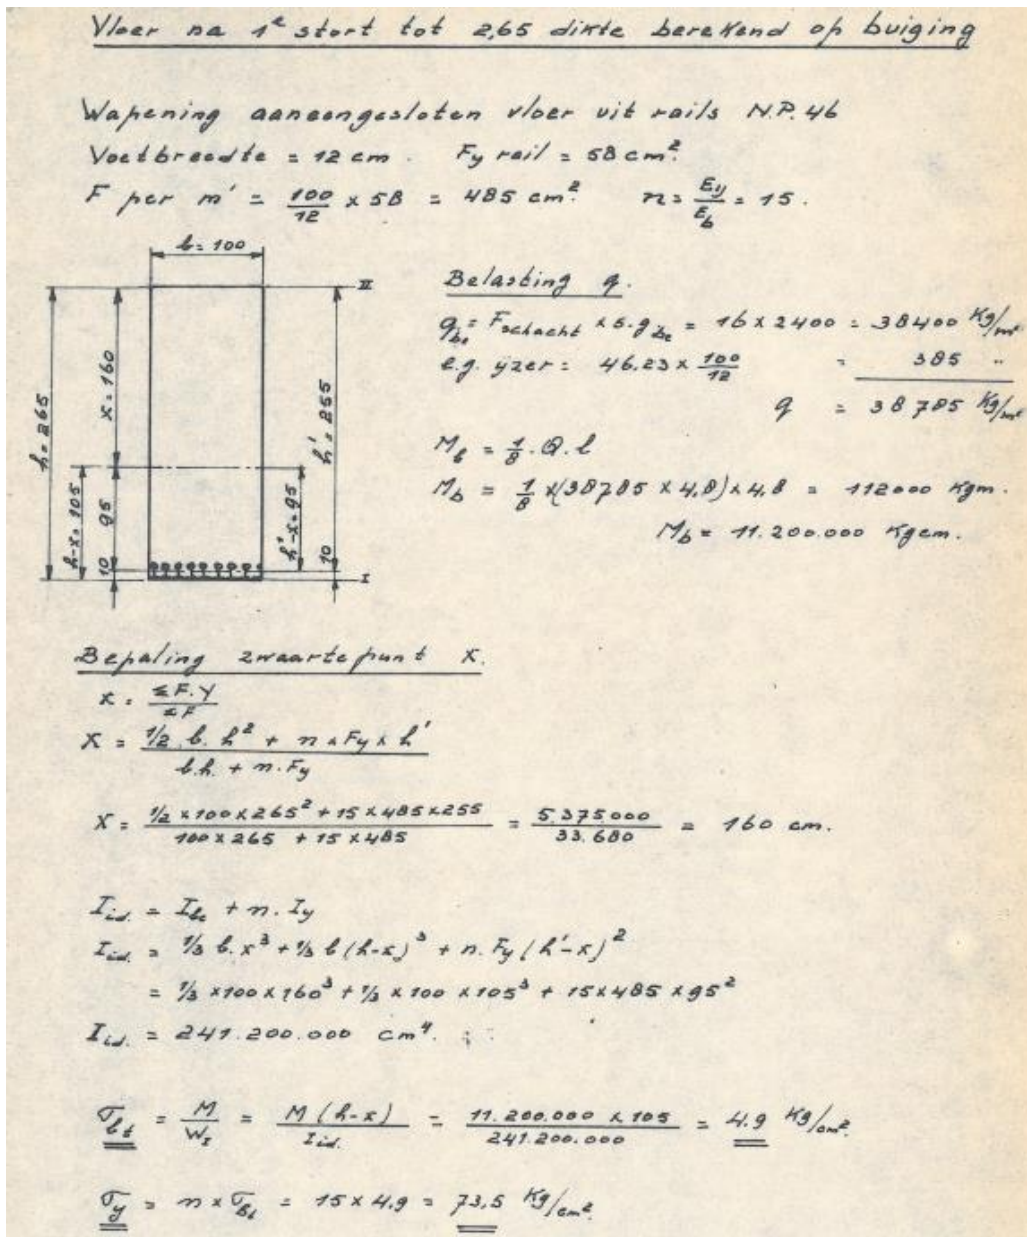 Vloer na 1e stort tot 2,65 dikte berekend op buiging
Wapening aaneengesloten vloer uit rails N.P. 46
Voetbreedte = 12 cm. Fy rail = 58 cm².
F per m' = 100/12 x 58 = 485 cm². n = Ey/Eb = 15.
b = 100
II
h = 265
x = 160
h' = 255
h-x = 105
95
10
h'-x = 95
10
I
Belasting q.
qbe = Fschacht x s.gbe = 16 x 2400 = 38400 Kg/m¹
e.g. yzer = 46.23 x 100/12 = 385 "
q = 38785 Kg/m¹
Mb = 1/8 . Q . l
Mb = 1/8 x (38785 x 4,8) x 4,8 = 112000 Kgm.
Mb = 11.200.000 Kgcm.
Bepaling zwaartepunt X.
x = ΣF.Y/ΣF
X = (1/2 . b . h² + n x Fy x h')/(b.h. + n.Fy)
X = (1/2 x 100 x 265² + 15 x 485 x 255)/(100 x 265 + 15 x 485) = 5.375.000/33.680 = 160 cm.
Iid. = Ibe + n . Iy
Iid. = 1/3 b.x³ + 1/3 b (h-x)³ + n . Fy (h'-x)²
= 1/3 x 100 x 160³ + 1/3 x 100 x 105³ + 15 x 485 x 95²
Iid. = 241.200.000 cm⁴.
σbt = M/WI = M (h-x)/Iid. = 11.200.000 x 105/241.200.000 = 4.9 Kg/cm².
σy = n x σbt = 15 x 4.9 = 73,5 Kg/cm².